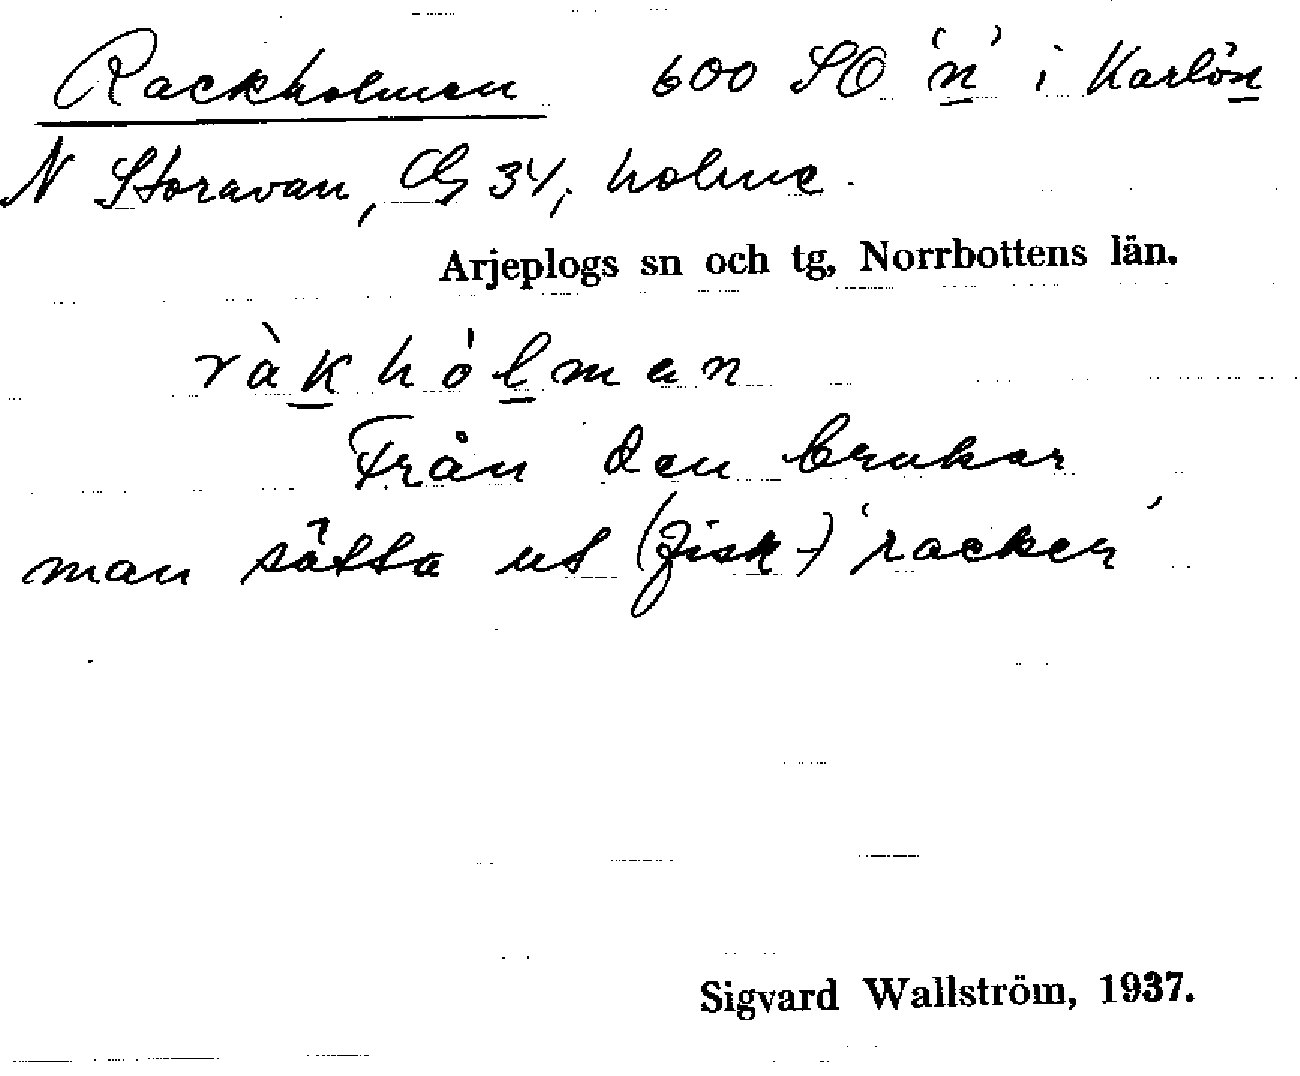 Rackholmen 600 SO 'n' i Karlön
N Storavan, G 34, holme.
Arjeplogs sn och tg, Norrbottens län.
ràkhólman
Från den brukar
man sätta ut (fisk-) 'racken'
Sigvard Wallström, 1937.